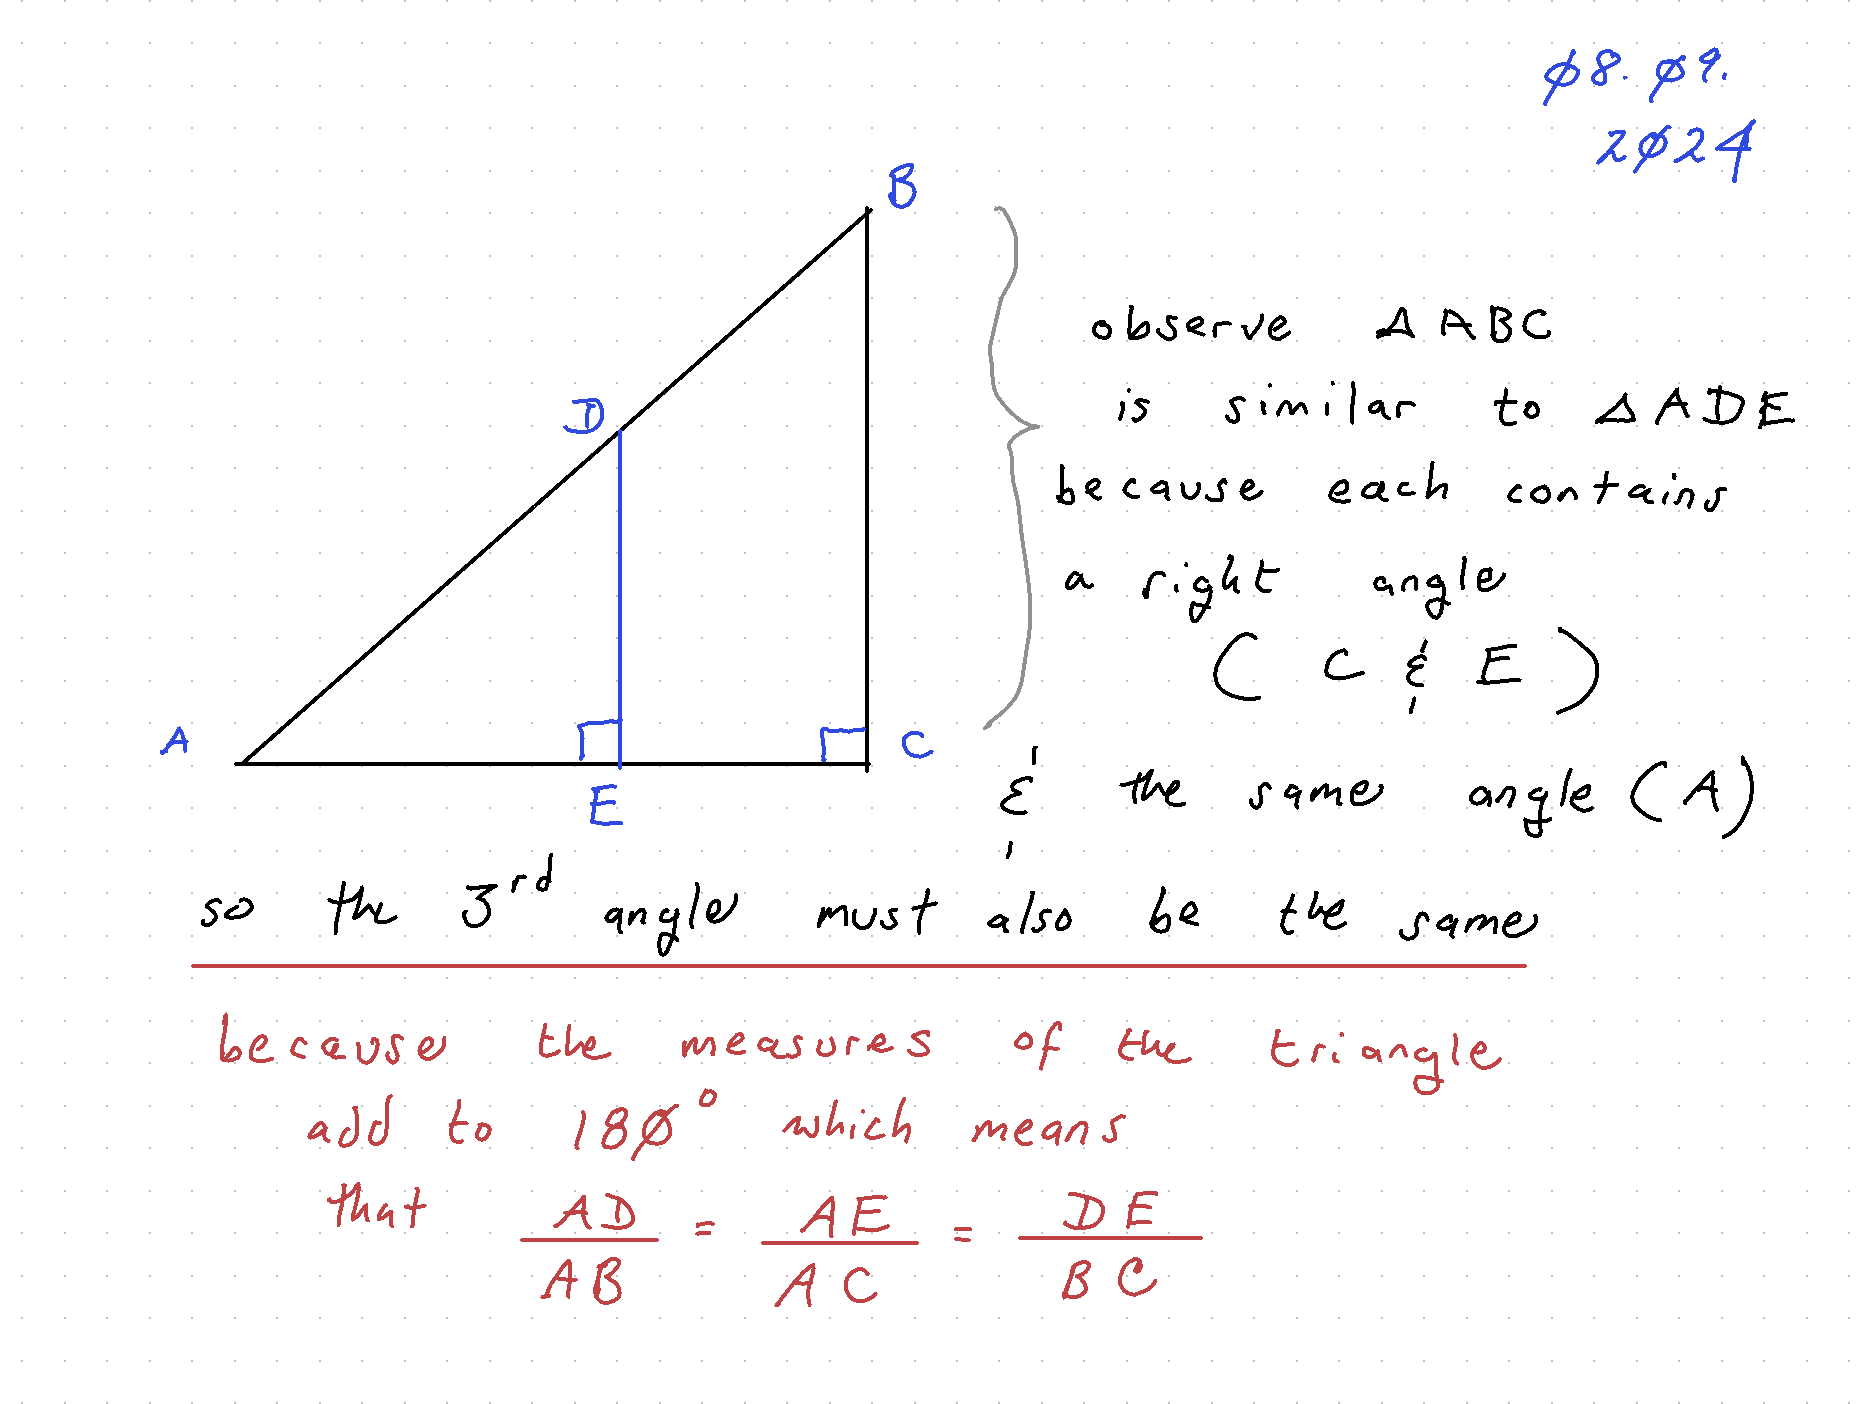 08.09.
2024
B
D
A
C
E
observe △ABC
is similar to △ADE
because each contains
a right angle
( C & E )
& the same angle (A)
so the 3rd angle must also be the same
because the measures of the triangle
add to 180° which means
that AD/AB = AE/AC = DE/BC